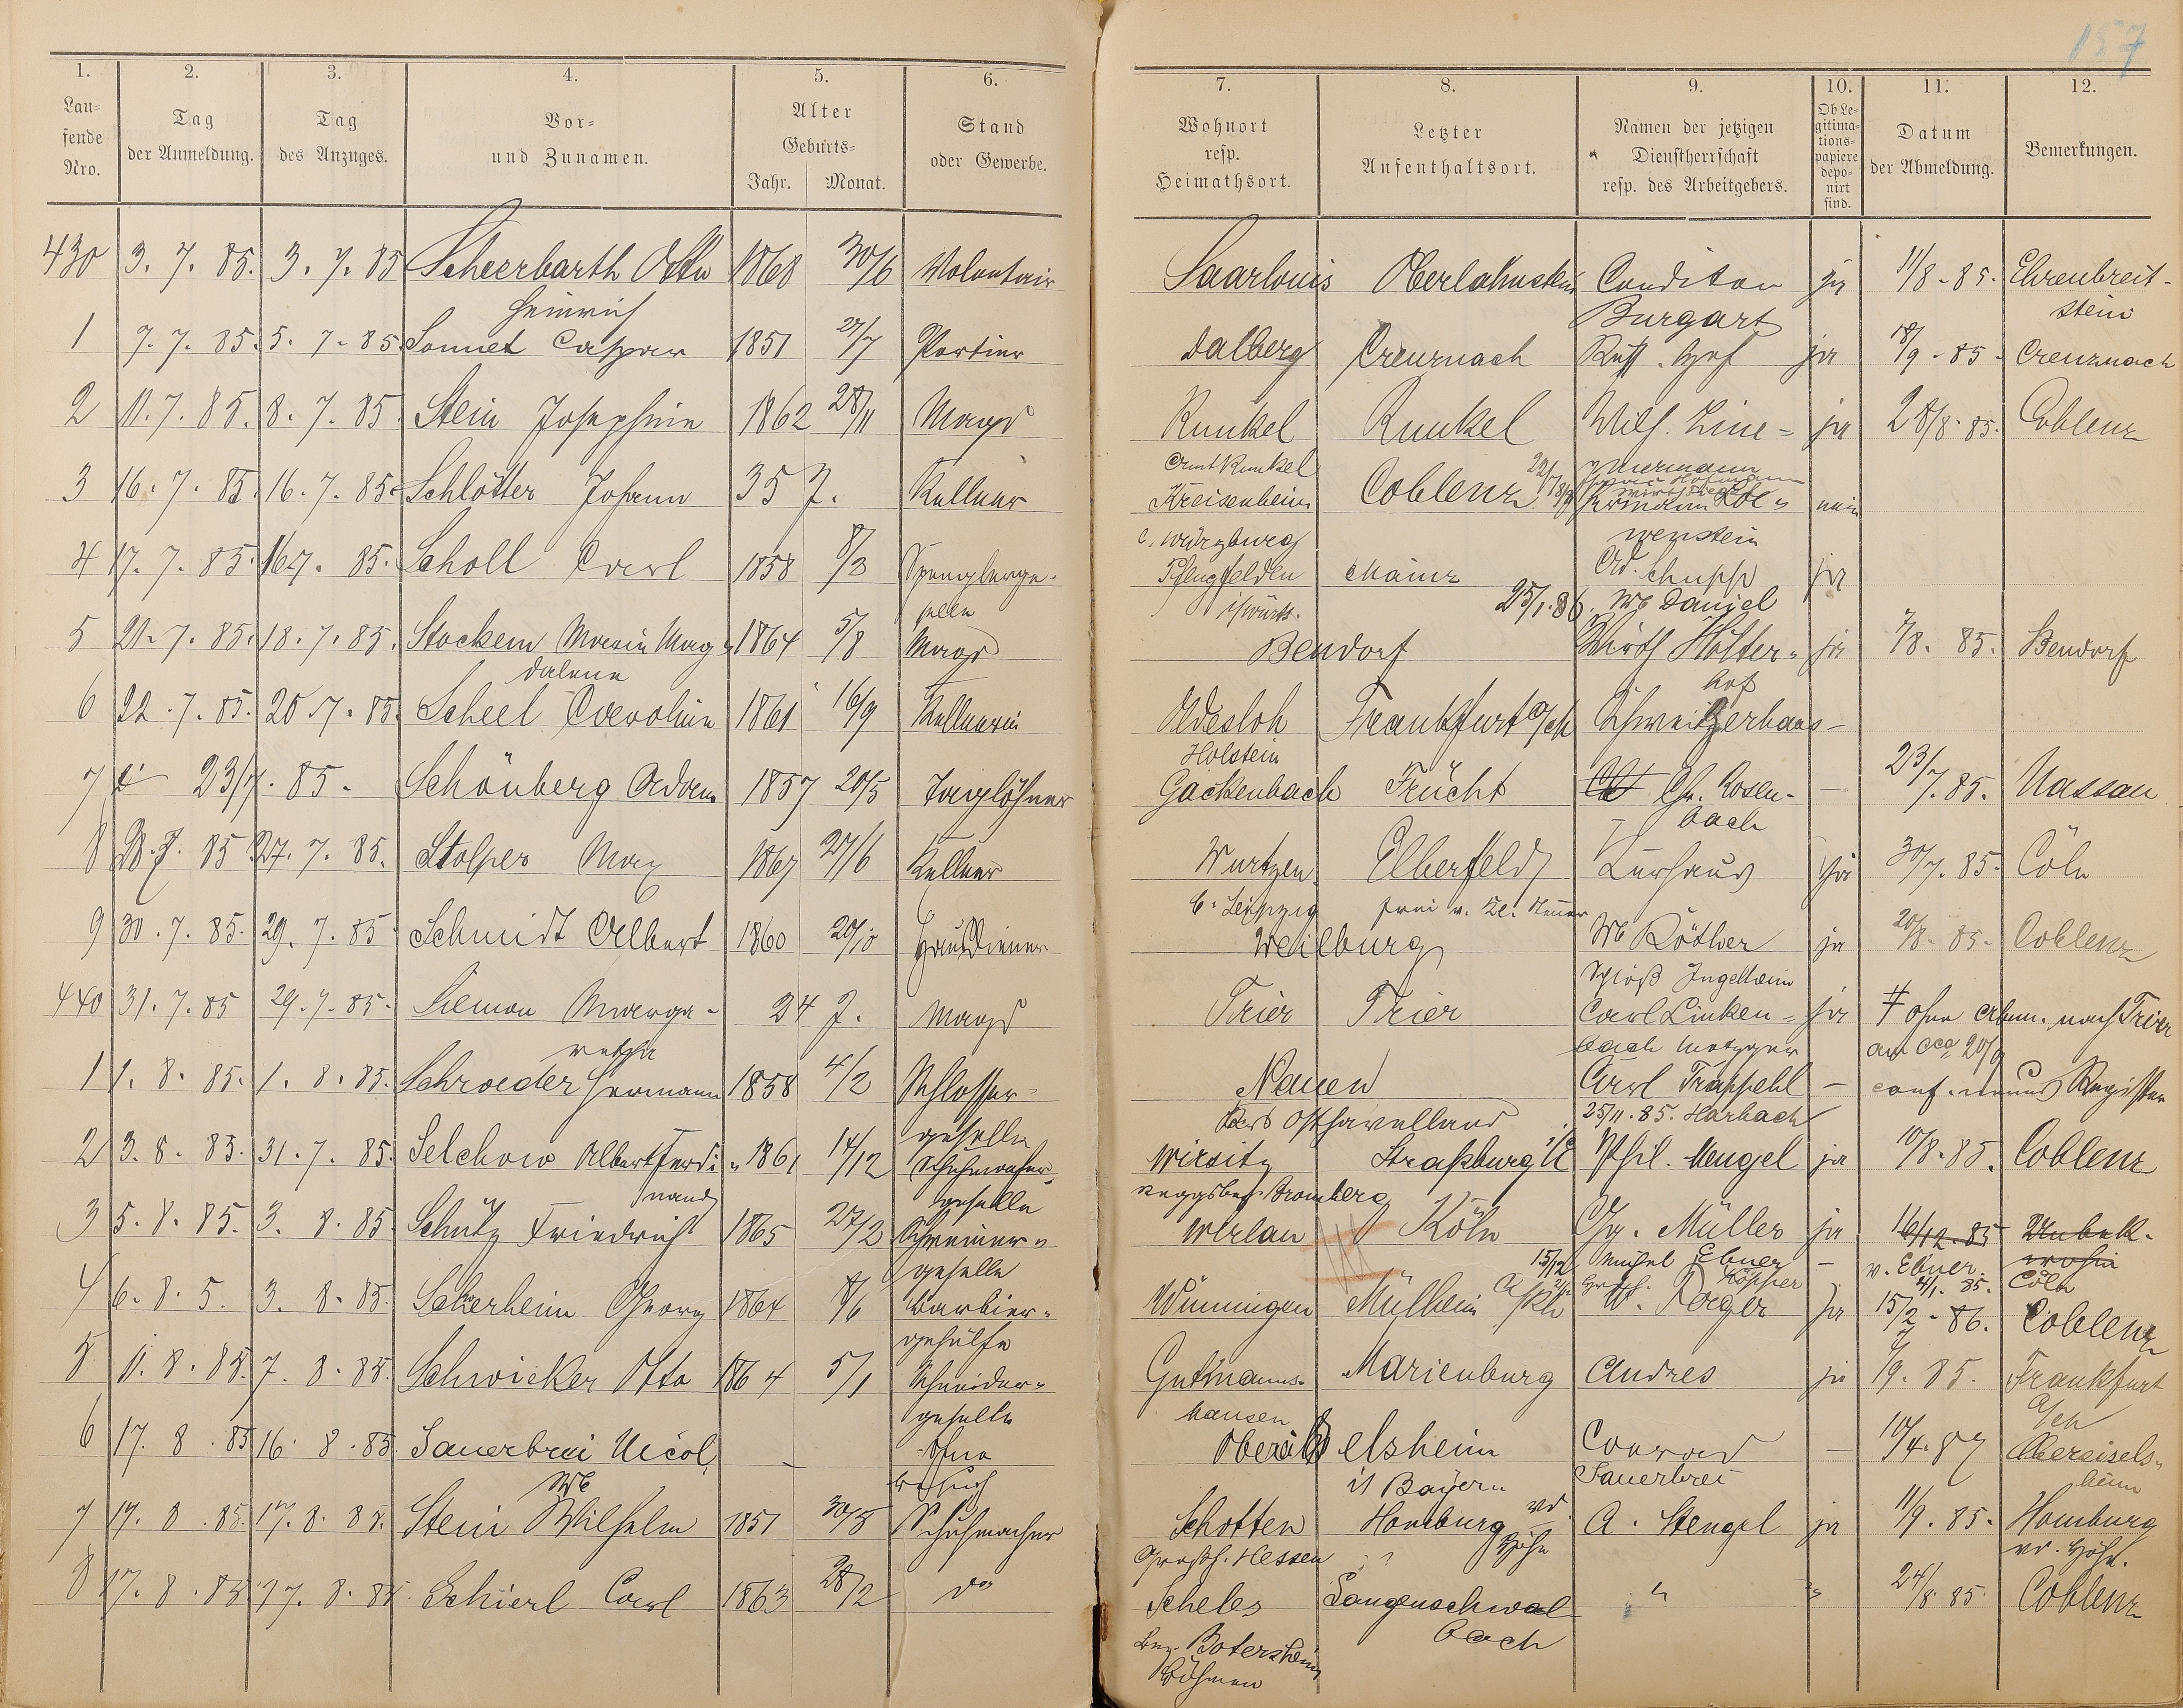 157
1. 2. 3. 4. 5. 6. 7. 8. 9. 10. 11. 12.
Lau=
fende
Nro.
Tag
der Anmeldung.
Tag
des Anzuges.
Vor=
und Zunamen.
Alter
Geburts=
Jahr. Monat.
Stand
oder Gewerbe.
Wohnort
resp.
Heimathsort.
Letzter
Aufenthaltsort.
Namen der jetzigen
Dienstherrschaft
resp. des Arbeitgebers.
Ob Le=
gitima=
tions=
papiere
depo=
nirt
sind.
Datum
der Abmeldung.
Bemerkungen.
430 3. 7. 85. 3. 7. 85 Scheerbarth Otto 1868 30/6 Volontair Saarlouis Oberlahnstein Conditor ja 11/8 - 85. Ehrenbreit-
Heinrich Burgart stein
1 7. 7. 85. 5. 7. 85. Sonnet Caspar 1851 27/7 Portier Dalberg Creuznach Russ. Hof ja 18/9 - 85 - Creuznach
2 11. 7. 85. 8. 7. 85. Stein Josephine 1862 28/11 Magd Runkel Runkel Wilh. Zim= ja 28/8 85. Coblenz
Amt Runkel mermann
3 16. 7. 85. 16. 7. 85. Schlötter Johann 35 J. Kellner Kreisenheim Coblenz Hermann Loe= nein
b. Würzburg wenstein
4 17. 7. 85. 16 7. 85. Scholl Carl 1858 8/3 Spenglerge- Mainz Ad. Schupp ja
selle i/Württ. 25/1. 86. Wb Daniel
5 21. 7. 85. 18. 7. 85. Stockem Maria Mag= 1864 5/8 Magd Bendorf Wirth Hölter= ja 7/8. 85. Bendorf
dalena hof
6 22. 7. 85. 20. 7. 85. Scheel Caroline 1861 16/9 Kellnerin Oldesloh Frankfurt a/M Schweitzerhaus -
Holstein
7 23/7. 85. Schönberg Adam 1857 20/5 Taglöhner Gackenbach Frücht Chr. Rosen- — 23/7. 85. Nassau
bach
8 28. 7. 85 27. 7. 85. Stolper Max 1867 27/6 Kellner Wurtzen Elberfeld Kurhaus ja 30/7. 85. Cöln
b. Leipzig
9 30. 7. 85. 29. 7. 85 Schmidt Albert 1860 20/10 Hausdiener Weilburg Wb Röther ja 20/8. 85. Coblenz
Schloß Ingelheim
440 31. 7. 85 29. 7. 85. Simon Marga- 24 J. Magd Trier Trier Carl Linken= ja ‡ ohne Abm. nach Trier
retha bach Metzger am cca 20/9
1 1. 8. 85. 1. 8. 85. Schroeder Hermann 1858 4/2 Schlosser- Nauen Carl Trappehl — conf. neues Register
geselle Kreis Osthavelland 25/11. 85. Harbach
2 3. 8. 85. 31. 7. 85. Selchow Albert Ferdi= 1861 14/12 Schuhmacher Wirsitz Straßburg i/E Phil. Mengel ja 10/8. 85. Coblenz
nand geselle Reggsbez. Bromberg
3 5. 8. 85. 3. 8. 85. Schütz Friedrich 1865 27/2 Schreiner= Werlau Köln Gg. Müller ja 16/12. 85 Unbek.
geselle 15/12 Michel Ebner — v. Ebner. wohin
4/1. 85. Cöln
4 6. 8. 5. 3. 8. 85. Scherheim Georg 1864 8/6 Barbier= Winningen Mülheim a/Rh W. Roeger ja 15/2 - 86. Coblenz
gehülfe
5 11. 8. 85. 7. 8. 85. Schwicker Otto 1864 5/1 Schneider= Gutmanns- Marienburg Andres ja 7/9. 85. Frankfurt
geselle hausen a/M
6 17. 8. 85 16. 8. 85. Sauerbrei Nicol. — ohne Obereiselsheim Conrad — 10/4. 87 Obereisels=
Wb i/ Bayern Sauerbrei heim
7 17. 8. 85. 17. 8. 85. Stein Wilhelm 1851 30/5 Schuhmacher Schotten Homburg vd A. Stengel ja 11/9. 85. Homburg
Großh. Hessen Höhe vd. Höhe.
8 17. 8. 85 17. 8. 85. Schierl Carl 1863 28/2 do Scheles Langenschwal- " " 24/8. 85. Coblenz
bach
Böhmen